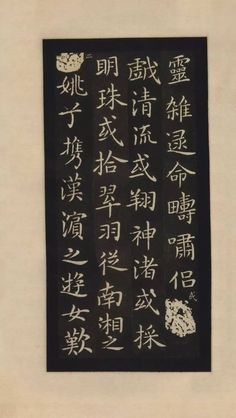 靈雜遝命疇嘯侣或
戲清流或翔神渚或採
明珠或拾翠羽從南湘之
二姚子攜漢濱之遊女歎